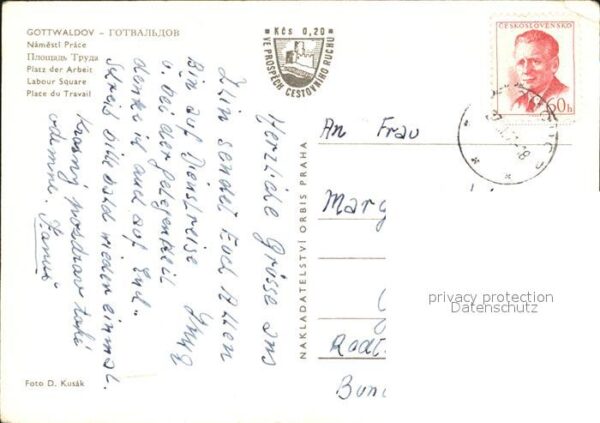 GOTTWALDOV – ГОТВАЛЬДОВ
Náměstí Práce
Площадь Труда
Platz der Arbeit
Labour Square
Place du Travail
Kčs 0,20
VE PROSPĚCH CESTOVNÍHO RUCHU
ČESKOSLOVENSKO
60h
Herzliche Grüsse aus
Zlin sendet Euch Allen
Bin auf Dienstreise
u. bei der Gelegenheit
denke ich auch auf Euch.
bald wieder einmal.
Krásný pozdrav také
odemne.
NAKLADATELSTVÍ ORBIS PRAHA
An Frau
Marg
Radt
Bun
privacy protection
Datenschutz
Foto D. Kusák